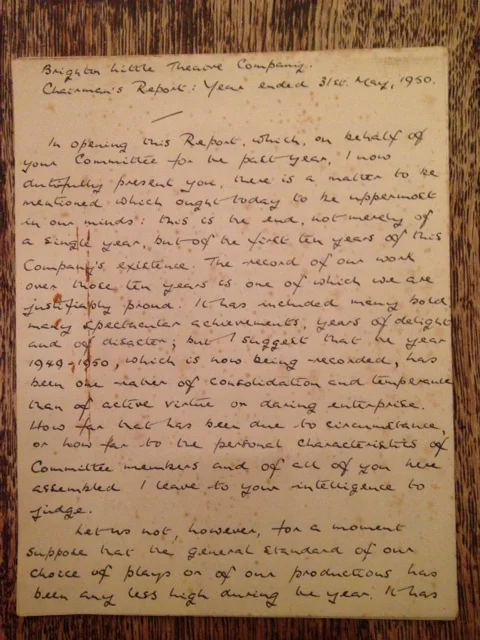 Brighton Little Theatre Company.
Chairman's Report: Year ended 31st. May, 1950.
In opening this Report, which, on behalf of
your Committee for the past year, I now
dutifully present you, there is a matter to be
mentioned which ought today to be uppermost
in our minds: this is the end, not merely of
a single year, but of the first ten years of this
Company's existence. The record of our work
over those ten years is one of which we are
justifiably proud. It has included many bold
many spectacular achievements, years of delight
and of disaster; but I suggest that the year
1949-1950, which is now being recorded, has
been one rather of consolidation and temperance
than of active virtue or daring enterprise.
How far that has been due to circumstance,
or how far to the personal characteristics of
Committee members and of all of you here
assembled I leave to your intelligence to
judge.
Let us not, however, for a moment
suppose that the general standard of our
choice of plays or of our productions has
been any less high during the year. It has